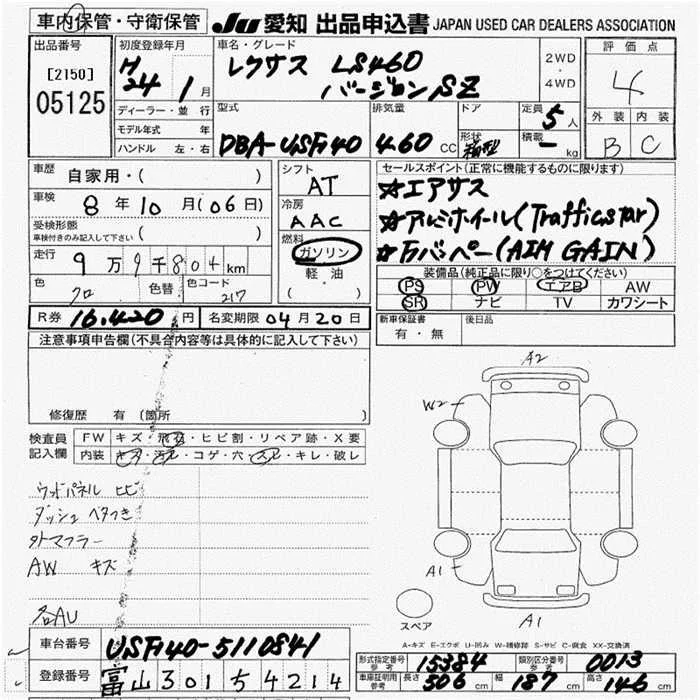 車内保管・守衛保管 JU 愛知 出品申込書 JAPAN USED CAR DEALERS ASSOCIATION
出品番号
[2150]
05125
初度登録年月
H 24年 1月
ディーラー・並行
モデル年式 年
ハンドル 左・右
車名・グレード
レクサス LS460
バージョンSZ
2WD
・
4WD
型式 DBA-USF40
排気量 460 CC
ドア
形状 箱型
定員 5人
積載 - kg
評価点
4
外装 内装
B C
車歴 自家用・( )
車検 8年10月(06日)
受検形態
車検付きのみ記入して下さい ( )
走行 9万9千804km
色 クロ 色替 色コード 217
R券 16.420円 名変期限 04月20日
シフト AT
冷房 AAC
燃料
ガソリン
軽油
( ・ )
セールスポイント(正常に機能するものに限ります)
☆エアサス
☆アルミホイール(Trafficstar)
☆Fバンパー(AIM GAIN)
装備品(純正品に限り○をつけてください)
PS PW エアB AW
SR ナビ TV カワシート
新車保証書 有・無
後日品
注意事項申告欄(不具合内容等は具体的に記入して下さい)
修復歴 有(箇所 )
検査員記入欄
FW キズ・飛石・ヒビ割・リペア跡・X要
内装 キズ・汚レ・コゲ・穴・スレ・キレ・破レ
ウッドパネル ヒビ
ダッシュ ベタつき
外マフラー
AW キズ
各AU
A2
W2
A1
A1
スペア
A-キズ E-エクボ U-凹み W-補修跡 S-サビ C-腐食 XX-交換済
車台番号 USF40-5110841
登録番号 富山301ち4214
形式指定番号 参考 15384
類別区分番号 参考 0013
車庫証明用 参考 長さ 506 cm 幅 187 cm 高さ 146 cm